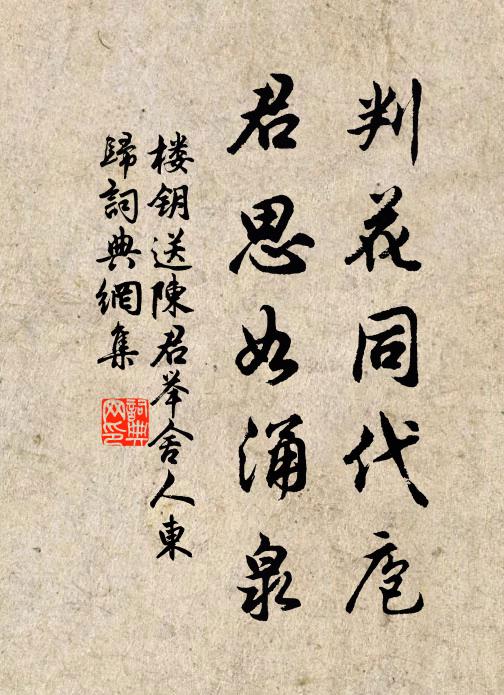 判花同代庖
君思如涌泉
楼钥送陳君举舍人東
歸詞典網集
詞典
网印